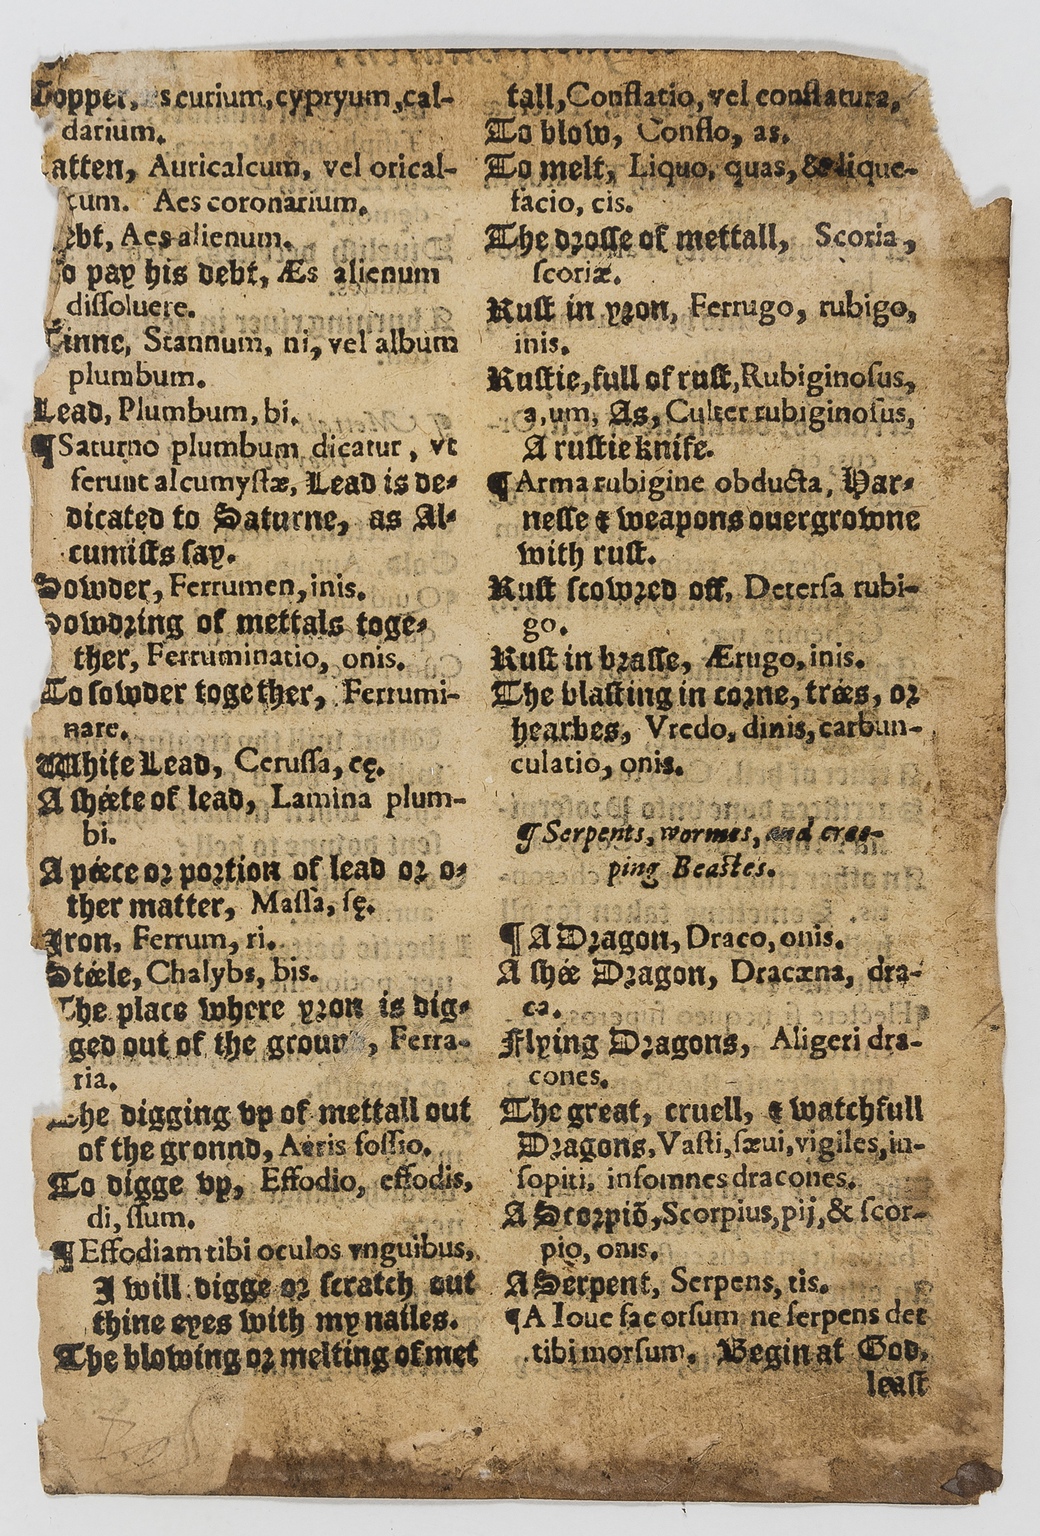 Copper, curium, cypryum, cal-
darium.
atten, Auricalcum, vel orical-
cum. Aes coronarium.
ebt, Aes alienum.
o pay his debt, Æs alienum
dissoluere.
Tinne, Stannum, ni, vel album
plumbum.
Lead, Plumbum, bi.
¶ Saturno plumbum dicatur, vt
ferunt alcumystæ, Lead is de-
dicated to Saturne, as Al-
cumists say.
Sowder, Ferrumen, inis.
Sowdring of mettals toge-
ther, Ferruminatio, onis.
To sowder together, Ferrumi-
nare.
White Lead, Cerussa, sę.
A shéete of lead, Lamina plum-
bi.
A péece or portion of lead or o-
ther matter, Massa, sę.
Iron, Ferrum, ri.
Stéele, Chalybs, bis.
The place where yron is dig-
ged out of the ground, Ferra-
ria.
The digging vp of mettall out
of the gronnd, Aeris fossio.
To digge vp, Effodio, effodis,
di, ssum.
¶ Effodiam tibi oculos vnguibus,
I will digge or scratch out
thine eyes with my nailes.
The blowing or melting of met
tall, Conflatio, vel conflatura,
To blow, Conflo, as.
To melt, Liquo, quas, & lique-
facio, cis.
The drosse of mettall, Scoria,
scoriæ.
Rust in yron, Ferrugo, rubigo,
inis.
Rustie, full of rust, Rubiginosus,
a, um, As, Culter rubiginosus,
A rustie knife.
¶ Arma rubigine obducta, Har-
nesse & weapons ouergrowne
with rust.
Rust scowred off, Detersa rubi-
go.
Rust in brasse, Ærugo, inis.
The blasting in corne, trées, or
hearbes, Vredo, dinis, carbun-
culatio, onis.
¶ Serpents, wormes, and cree-
ping Beastes.
¶ A Dragon, Draco, onis.
A shée Dragon, Dracæna, dra-
cæ.
Flying Dragons, Aligeri dra-
cones.
The great, cruell, & watchfull
Dragons, Vasti, sæui, vigiles, in-
sopiti, insomnes dracones.
A Scorpiõ, Scorpius, pij, & scor-
pio, onis.
A Serpent, Serpens, tis.
¶ A Ioue fac orsum ne serpens det
tibi morsum. Begin at God,
least